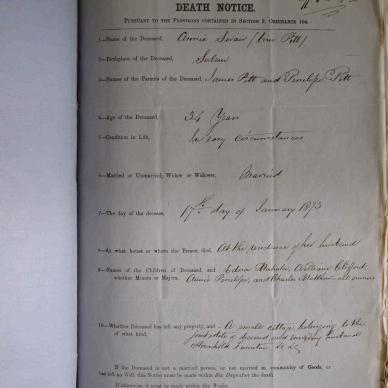 DEATH NOTICE.
PURSUANT TO THE PROVISIONS CONTAINED IN SECTION 9, ORDINANCE 104.
1.—Name of the Deceased, Annie Swan (born Pitt)
2.—Birthplace of the Deceased, Salem
3.—Names of the Parents of the Deceased, James Pitt and Penelope Pitt
4.—Age of the Deceased, 34 Years
5.—Condition in Life, In easy circumstances
6.—Married or Unmarried, Widow or Widower, Married
7.—The day of the decease, 17th day of January 1873
8.—At what house or where the Person died, At the residence of her husband
9.—Names of the Children of Deceased, and Edwin William Clifford,
whether Minors or Majors, Annie Penelope, and Charles Matthew all minors
10.—Whether Deceased has left any property, and A small cottage belonging to the
of what kind. joint estate of deceased and surviving husband
Household Furniture &c &c
If the Deceased is not a married person, or not married in community of Goods, or
has left no Will, this Notice must be made within Six Days after the death.
If otherwise, it must be made within Six Weeks.